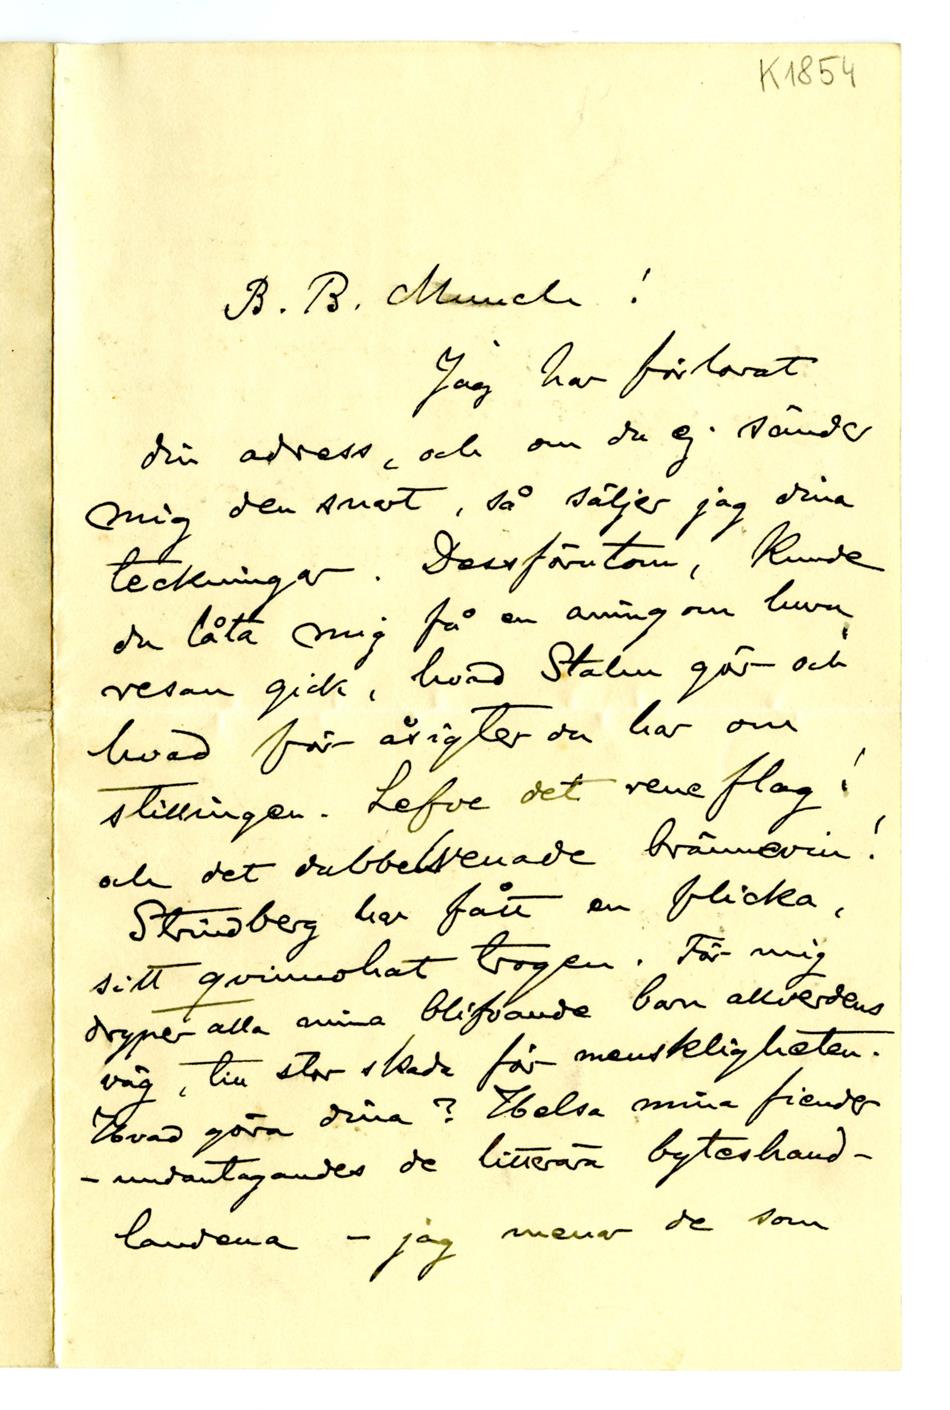 K1854
B. B. Munch!
Jag har förlorat
din adress, och om du ej sänder
mig den snart, så säljer jag dina
teckningar. Dessförutom, Kunde
du låta mig få en aning om huru
resan gick, hvad Stahu gör och
hvad för åsigter du har om
stillingen. Lefve det rene flag!
och det dubbelrenade brännevin!
Strindberg har fått en flicka,
sitt qvinnohat trogen. För mig
dryper alla mina blifvande barn allverdens
väg, till stor skada för menskligheten.
Hvad göra dina? Helsa mina fiender
- undantagandes de litterära byteshand-
landena - jag menar de som